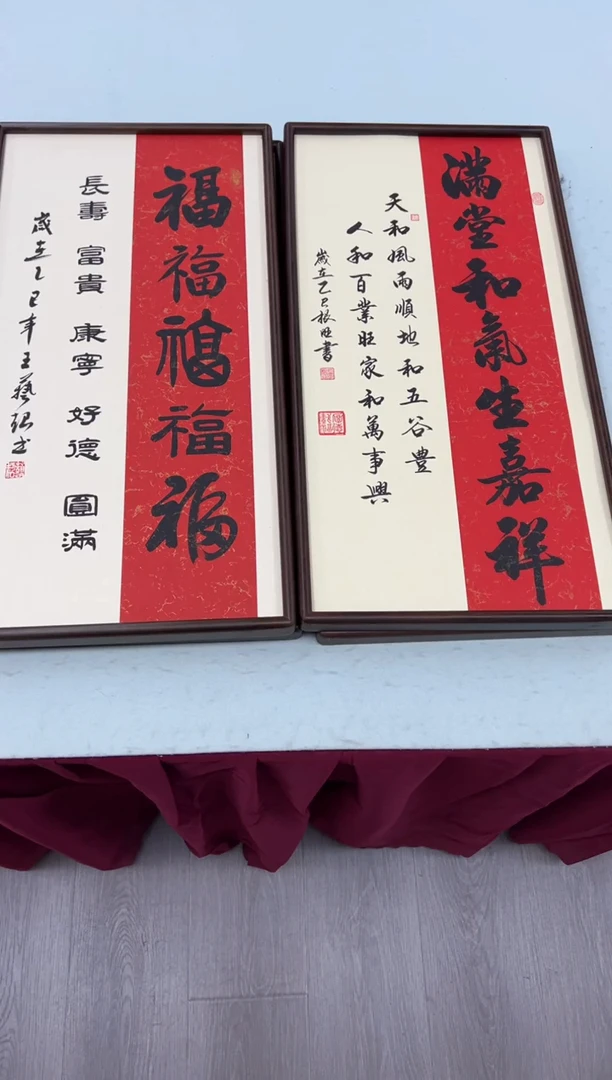 满堂和氣生嘉祥
天和風雨順地和五谷豐
人和百業旺家和萬事興
歲在乙巳振旺書
福福福福福
長壽 富貴 康寧 好德 圓滿
歲在乙巳年王藝